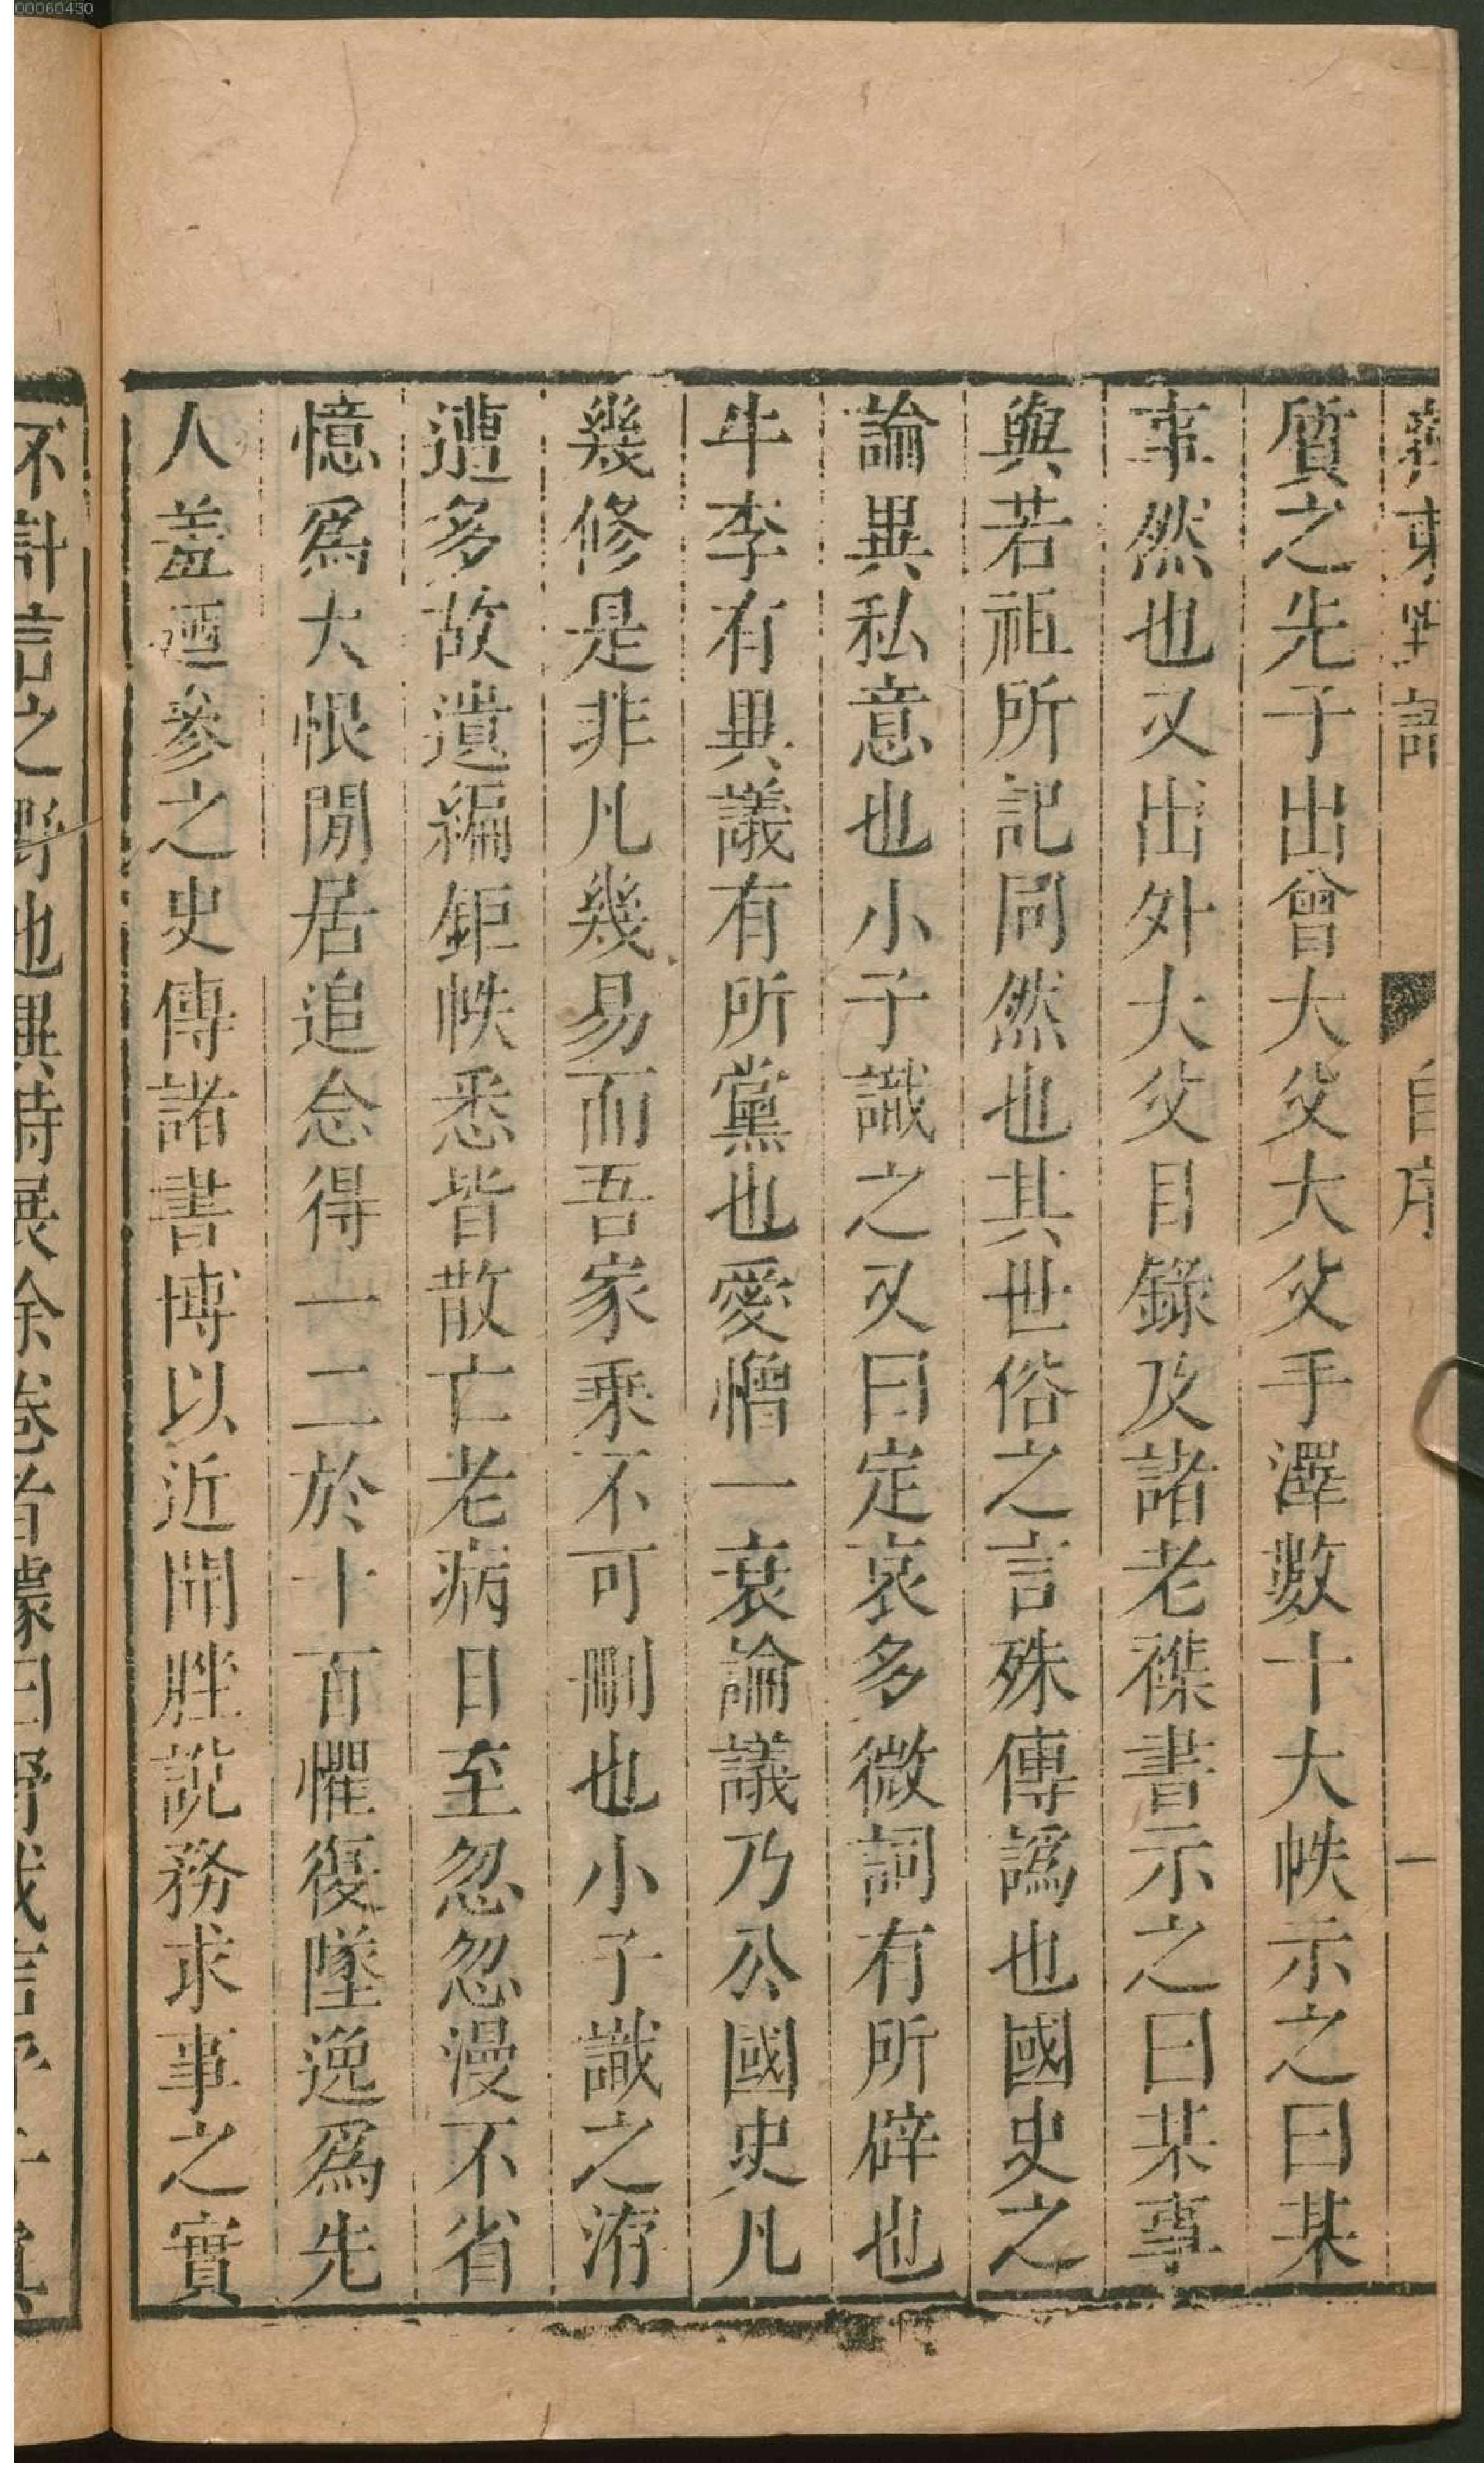 00060430
齊東野語 自序 一
質之先子出曾大父大父手澤數十大帙示之曰某
事然也又出外大父目錄及諸老襍書示之曰某事
與若祖所記同然也其世俗之言殊傳譌也國史之
論異私意也小子識之又曰定哀多微詞有所辟也
牛李有異議有所黨也愛憎一衰論議乃公國史凡
幾修是非凡幾易而吾家乘不可刪也小子識之洊
遭多故遺編鉅帙悉皆散亡老病日至忽忽漫不省
憶爲大恨閒居追念得一二於十百懼復墜逸爲先
人羞廼參之史傳諸書博以近聞脞說務求事之實
不計言之野也異時展余卷者譁曰野哉言乎子真